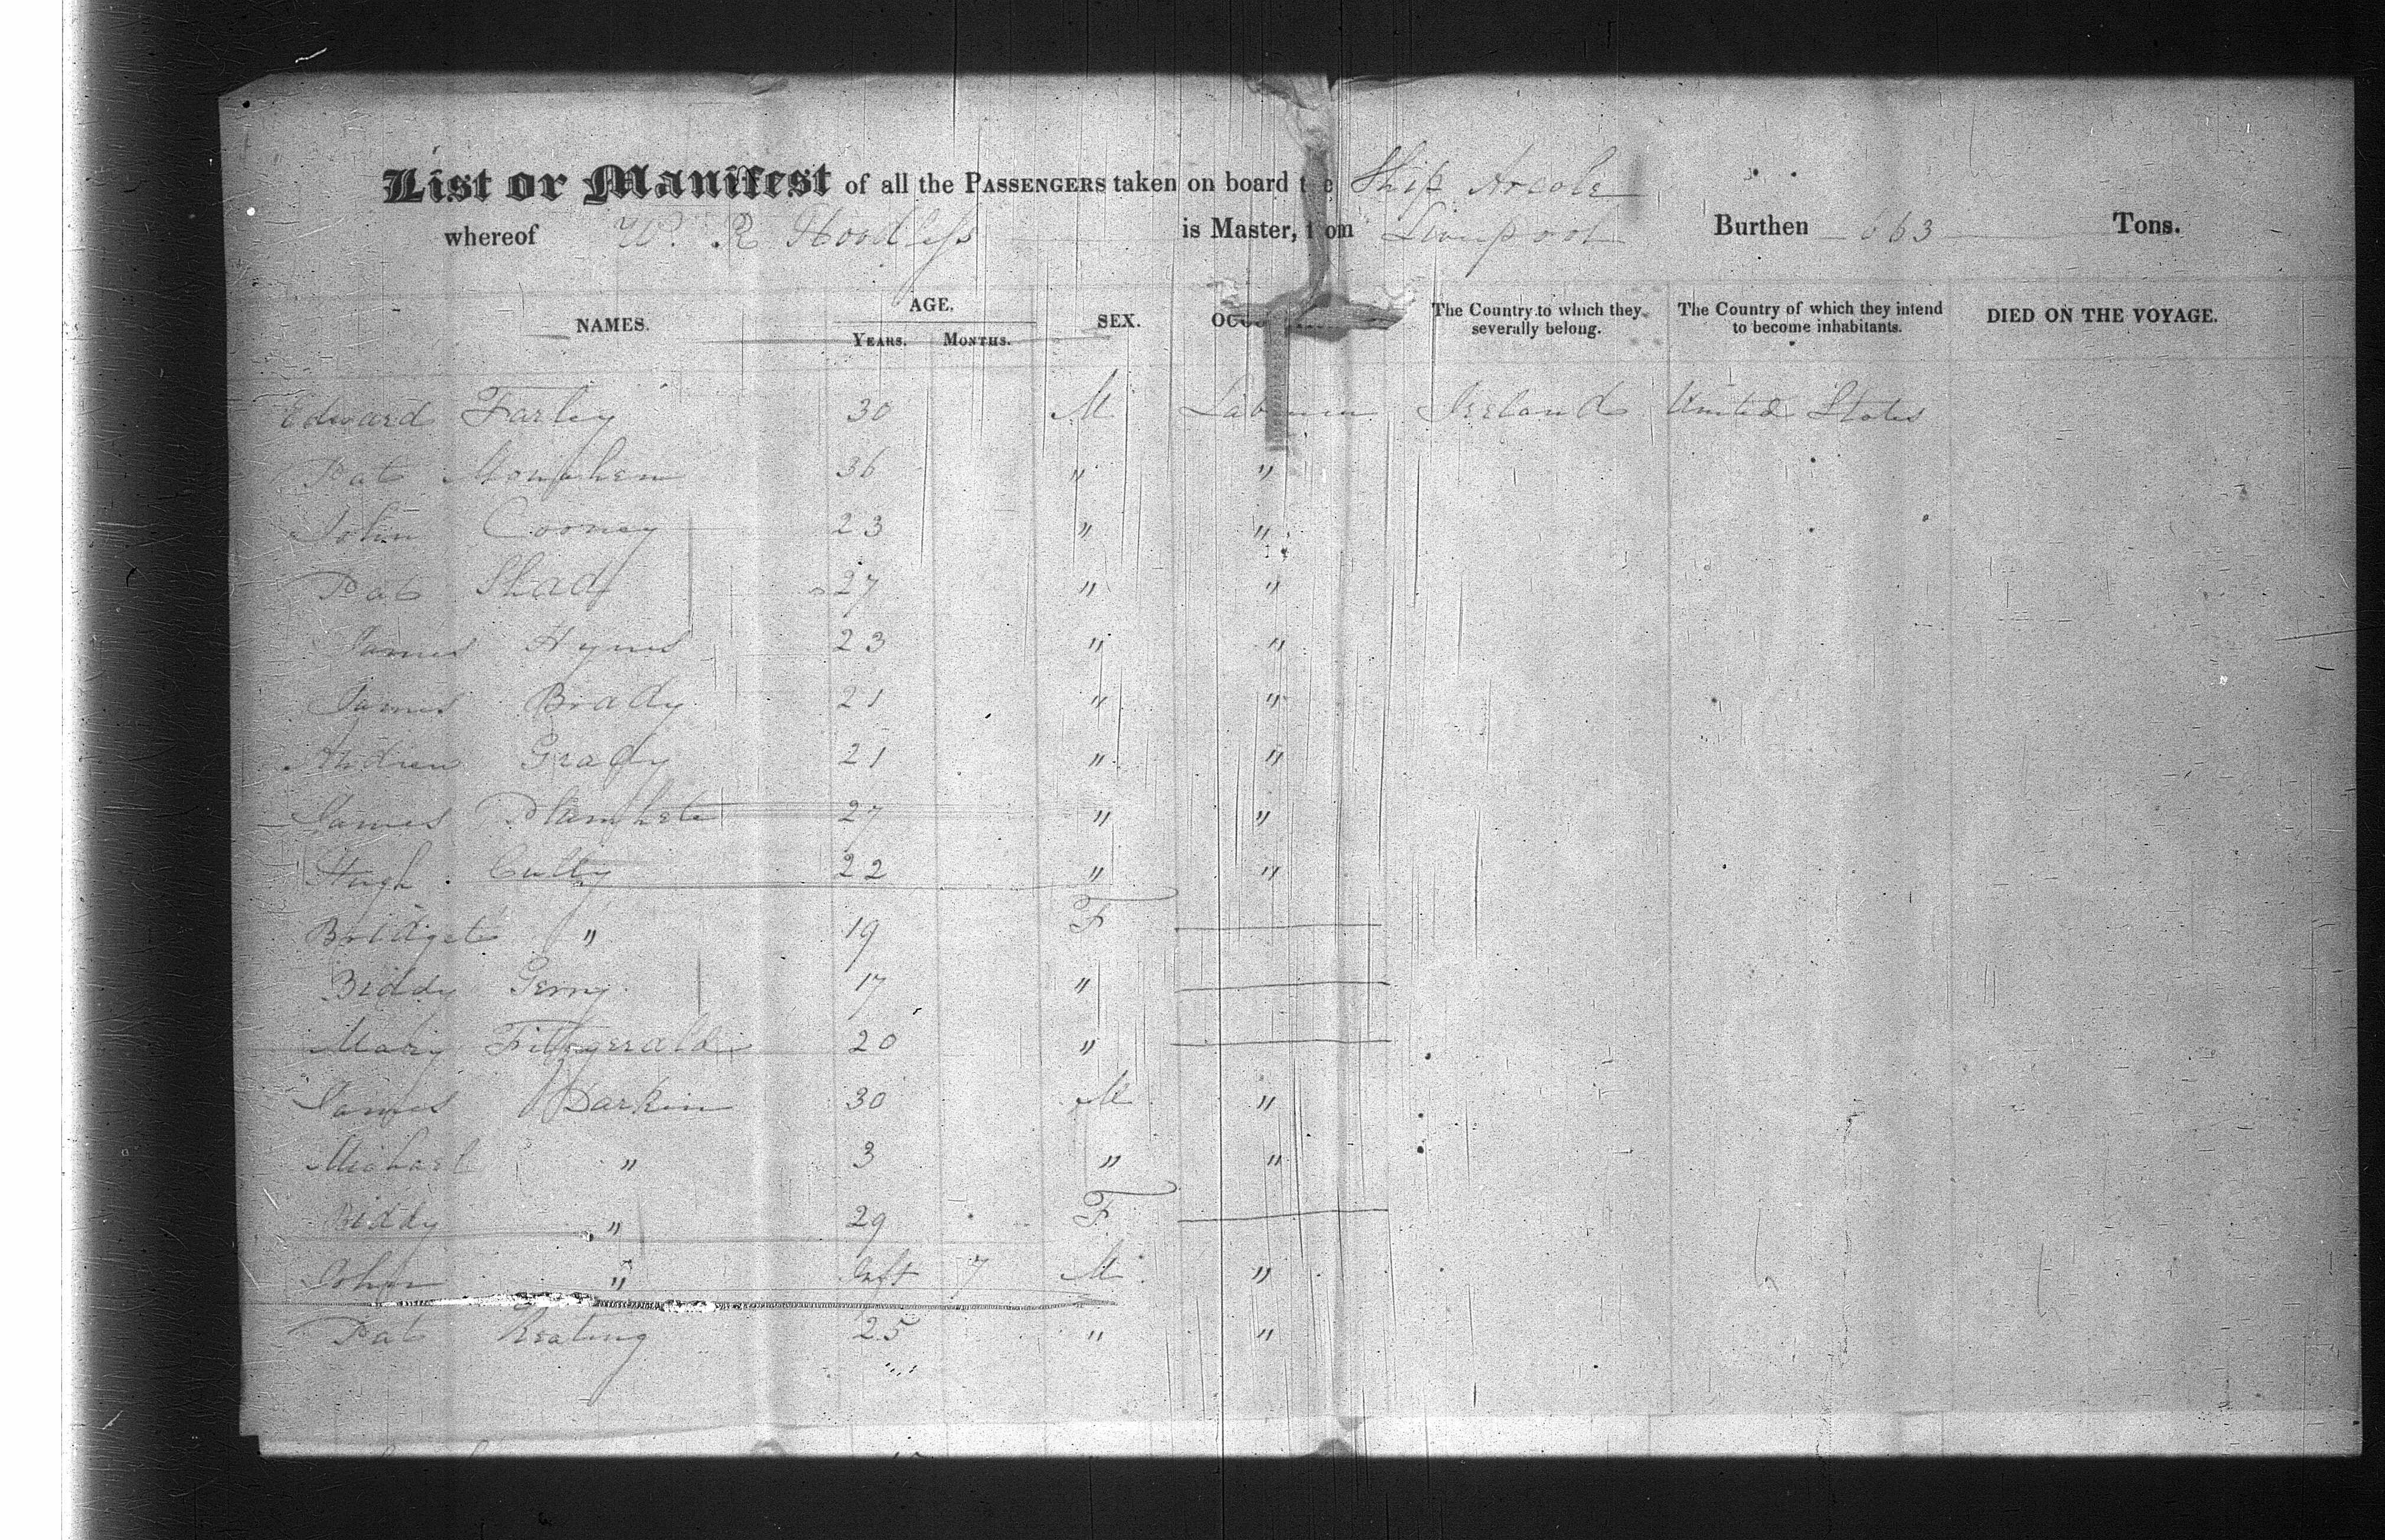 List or Manifest of all the PASSENGERS taken on board the Ship Arcole
whereof W. R. Hoodless is Master, from Liverpool Burthen 663 Tons.
NAMES. AGE. YEARS. MONTHS. SEX. The Country to which they severally belong. The Country of which they intend to become inhabitants. DIED ON THE VOYAGE.
Edward Farley 30 M Ireland United States
Pat 36 " "
John Cooney 23 " "
Pat 27 " "
James Hynes 23 " "
James Brady 21 " "
Andrew Grady 21 " "
James 27 " "
Hugh Culty 22 " "
Bridget " 19 F
Biddy 17 "
Mary Fitzgerald 20 "
James Darkin 30 M "
Michael " 3 " "
Biddy " 29 F
John " Inft 7 M "
Pat Keating 25 " "